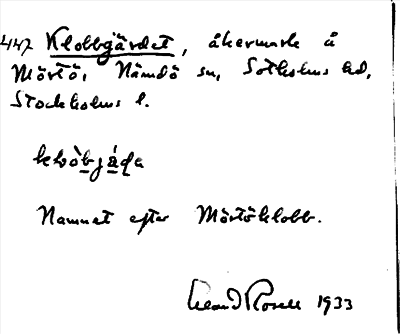 447 Klobbgärdet, åkermark å
Mörtö, Nämdö sn, Sotholms hd,
Stockholms l.
Namnet efter Mörtöklobb.
1933